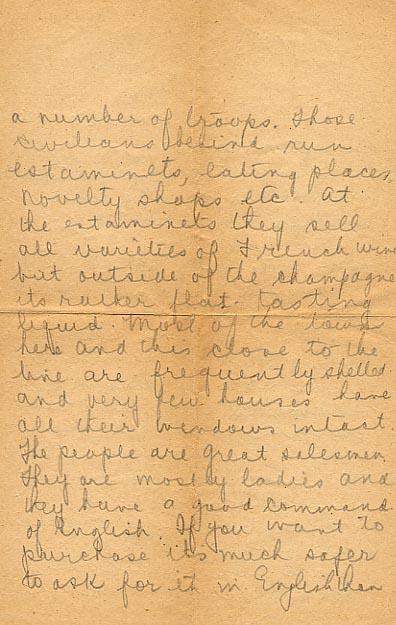 a number of troops. Those
civilians behind run
estaminets, eating places,
novelty shops etc. At
the estaminets they sell
all varieties of French wine
but outside of the champagne
its rather flat tasting
liquid. Most of the towns
here and this close to the
line are frequently shelled
and very few houses have
all their windows intact.
The people are great salesmen.
They are mostly ladies and
they have a good command
of English. If you want to
purchase its much safer
to ask for it in English than